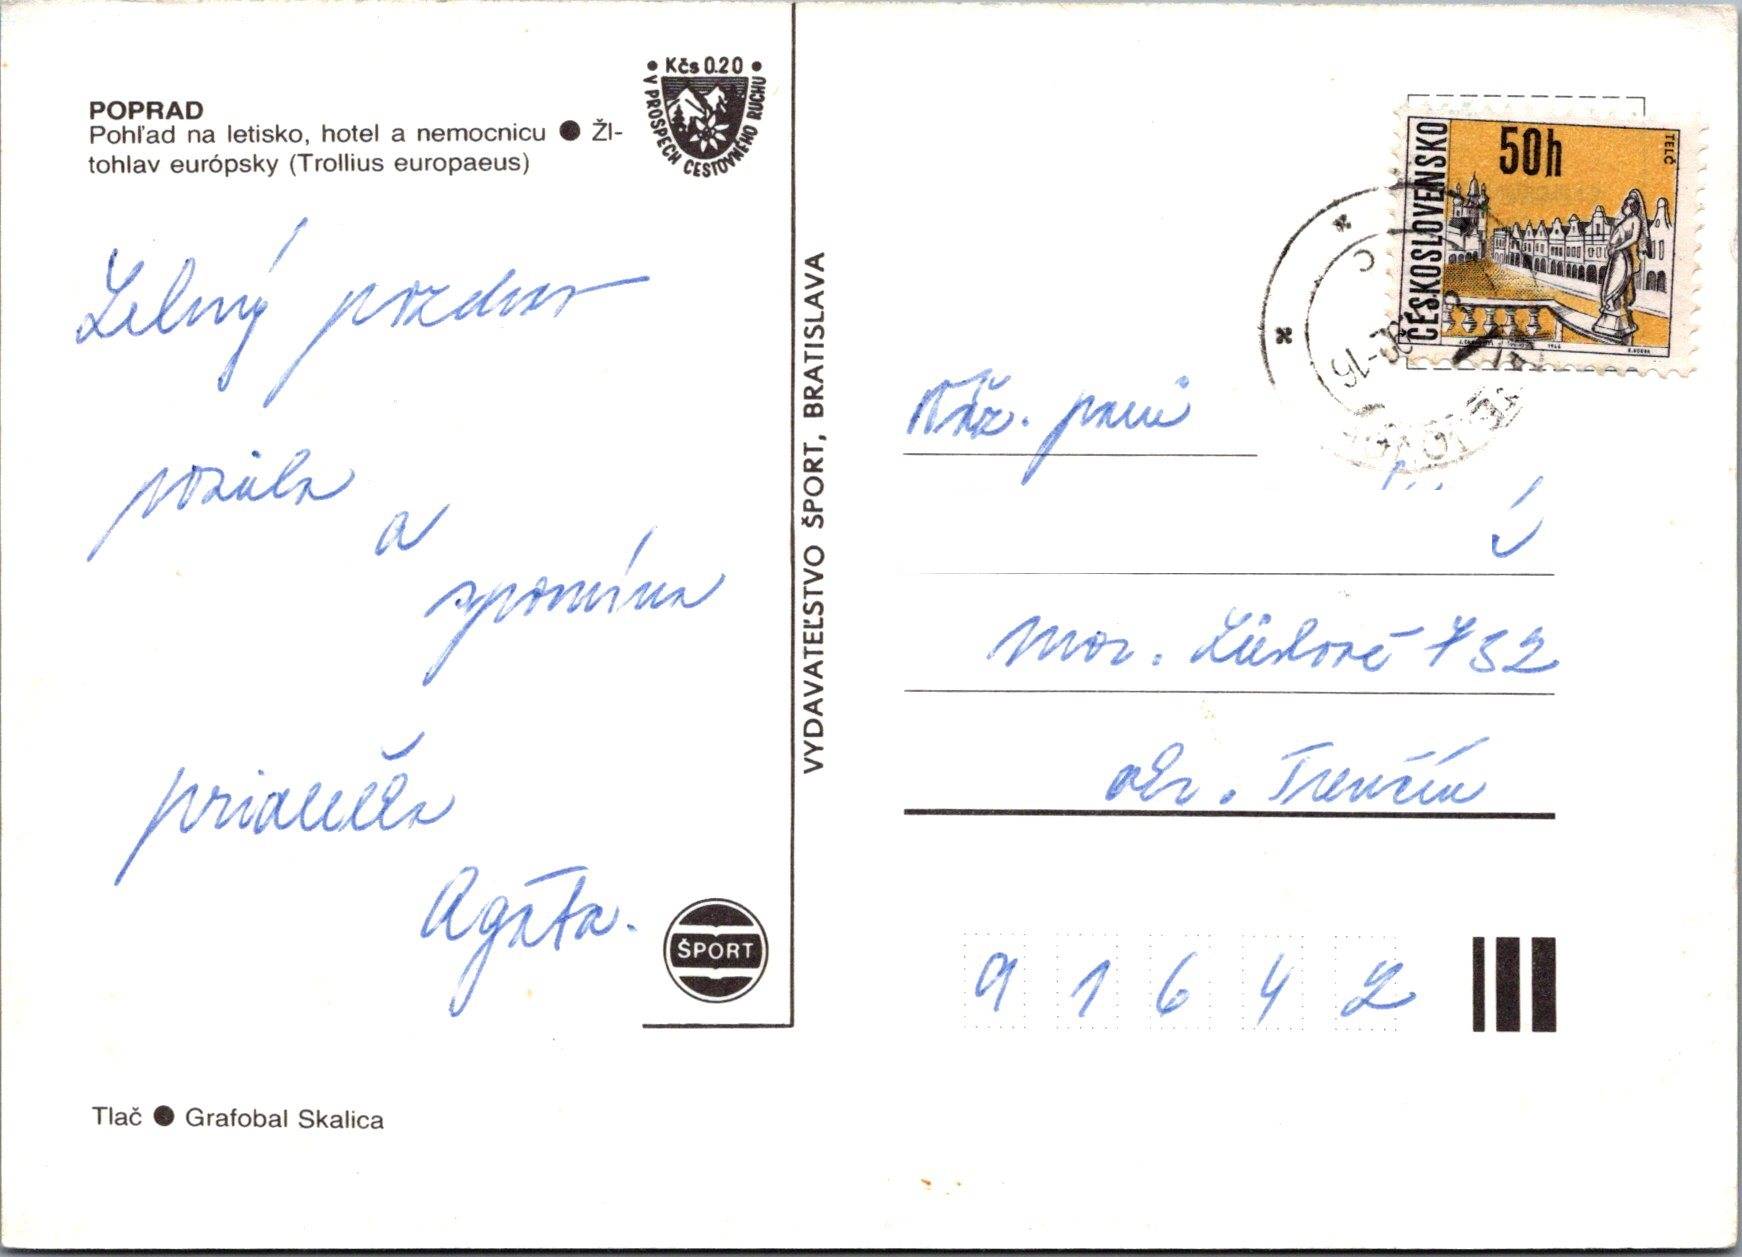 POPRAD
Pohľad na letisko, hotel a nemocnicu ● Žl-
tohlav európsky (Trollius europaeus)
• Kčs 0.20 •
V PROSPECH CESTOVNÉHO RUCHU
Lelný pozdrav
posiela
a
spomína
priateľka
Agáta.
ŠPORT
Tlač ● Grafobal Skalica
VYDAVATEĽSTVO ŠPORT, BRATISLAVA
ČESKOSLOVENSKO
50h
TELČ
Váž. pani
Mor. Lieskové 732
okr. Trenčín
91642